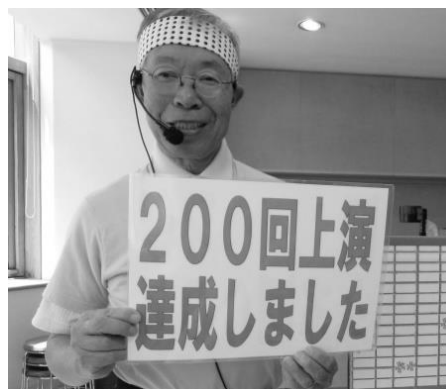 ２００回上演
達成しました